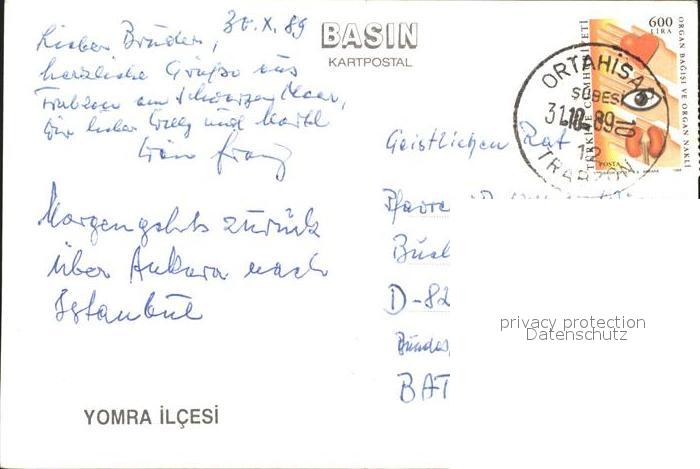 30.X.89
Lieber Bruder,
herzliche Grüße aus
Trabzon am Schwarzen Meer,
Dir lieber Willy und
Dein Franz
Morgen gehts zurück
über Ankara nach
Istanbul
YOMRA İLÇESİ
BASIN
KARTPOSTAL
600
LIRA
ORGAN BAĞIŞI VE ORGAN NAKLİ
TÜRKİYE CUMHURİYETİ
POSTA
ORTAHİSAR
ŞUBESİ
31.10.89 10
TRABZON
Geistlichen Rat
Pfarrer
D-82
BAT
privacy protection
Datenschutz